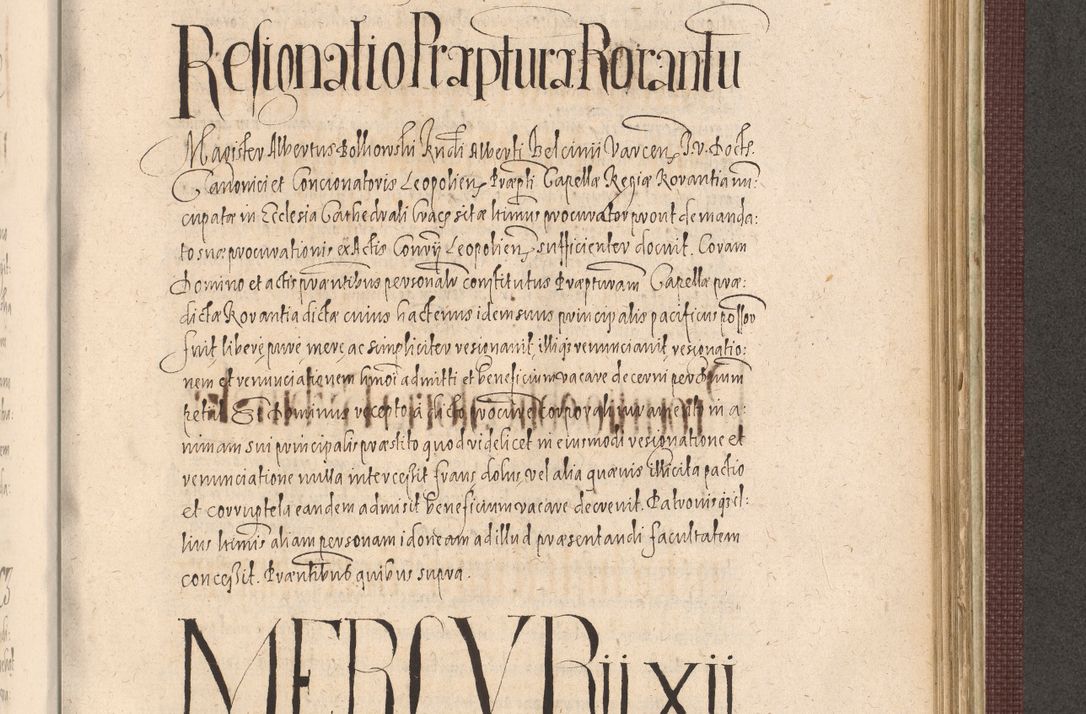 Resignatio Præpturæ Rorantũ
Magister Albertus Bolkowski Rndi Alberti Belcinii Varcen J. V. Doctr.
Canonici et Concionatoris Leopolien Præpti Capellæ Regiæ Rorantia nu:
cupatæ in Ecclesia Cathedrali Cracs sitæ ltimus procurator prout de manda:
to suæ procurationis ex Actis Convrÿ Leopolien sufficienter docuit. Coram
Domino et actis præntibus personalr constitutus Præpturam Capellæ præ:
dictæ Rorantia dictæ cuius hactenus idem suus principalis pacificus possor
fuit libere pure mere ac simpliciter resignauit, illiqs renunciauit, resignatio:
nem et renunciationem hmoi admitti et beneficium vacare decerni
petãt. Et Dominus recepto a dicto procure corporali iuramento in a:
nimam sui principalis præstito quod videlicet in eiusmodi resignatione et
renunciatione nulla intercessit fraus, dolus, vel alia quæuis illicita pactio
et corruptela eandem admisit beneficium vacare decreuit. Patronis qs il:
lius ltimis aliam personam idoneam ad illud præsentandi facultatem
concessit. Præntibus quibus supra.
MERCVRii xii